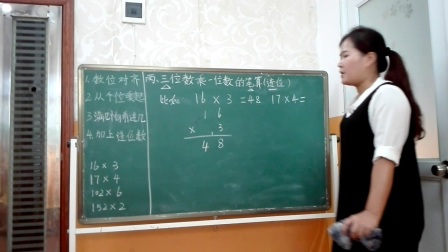 1.数位对齐
2.从个位乘起
4.加上进位数
16×3
17×4
102×6
152×2
两、三位数乘一位数的笔算(进位)
比如 16×3=48 17×4=
1 6
× 3
4 8